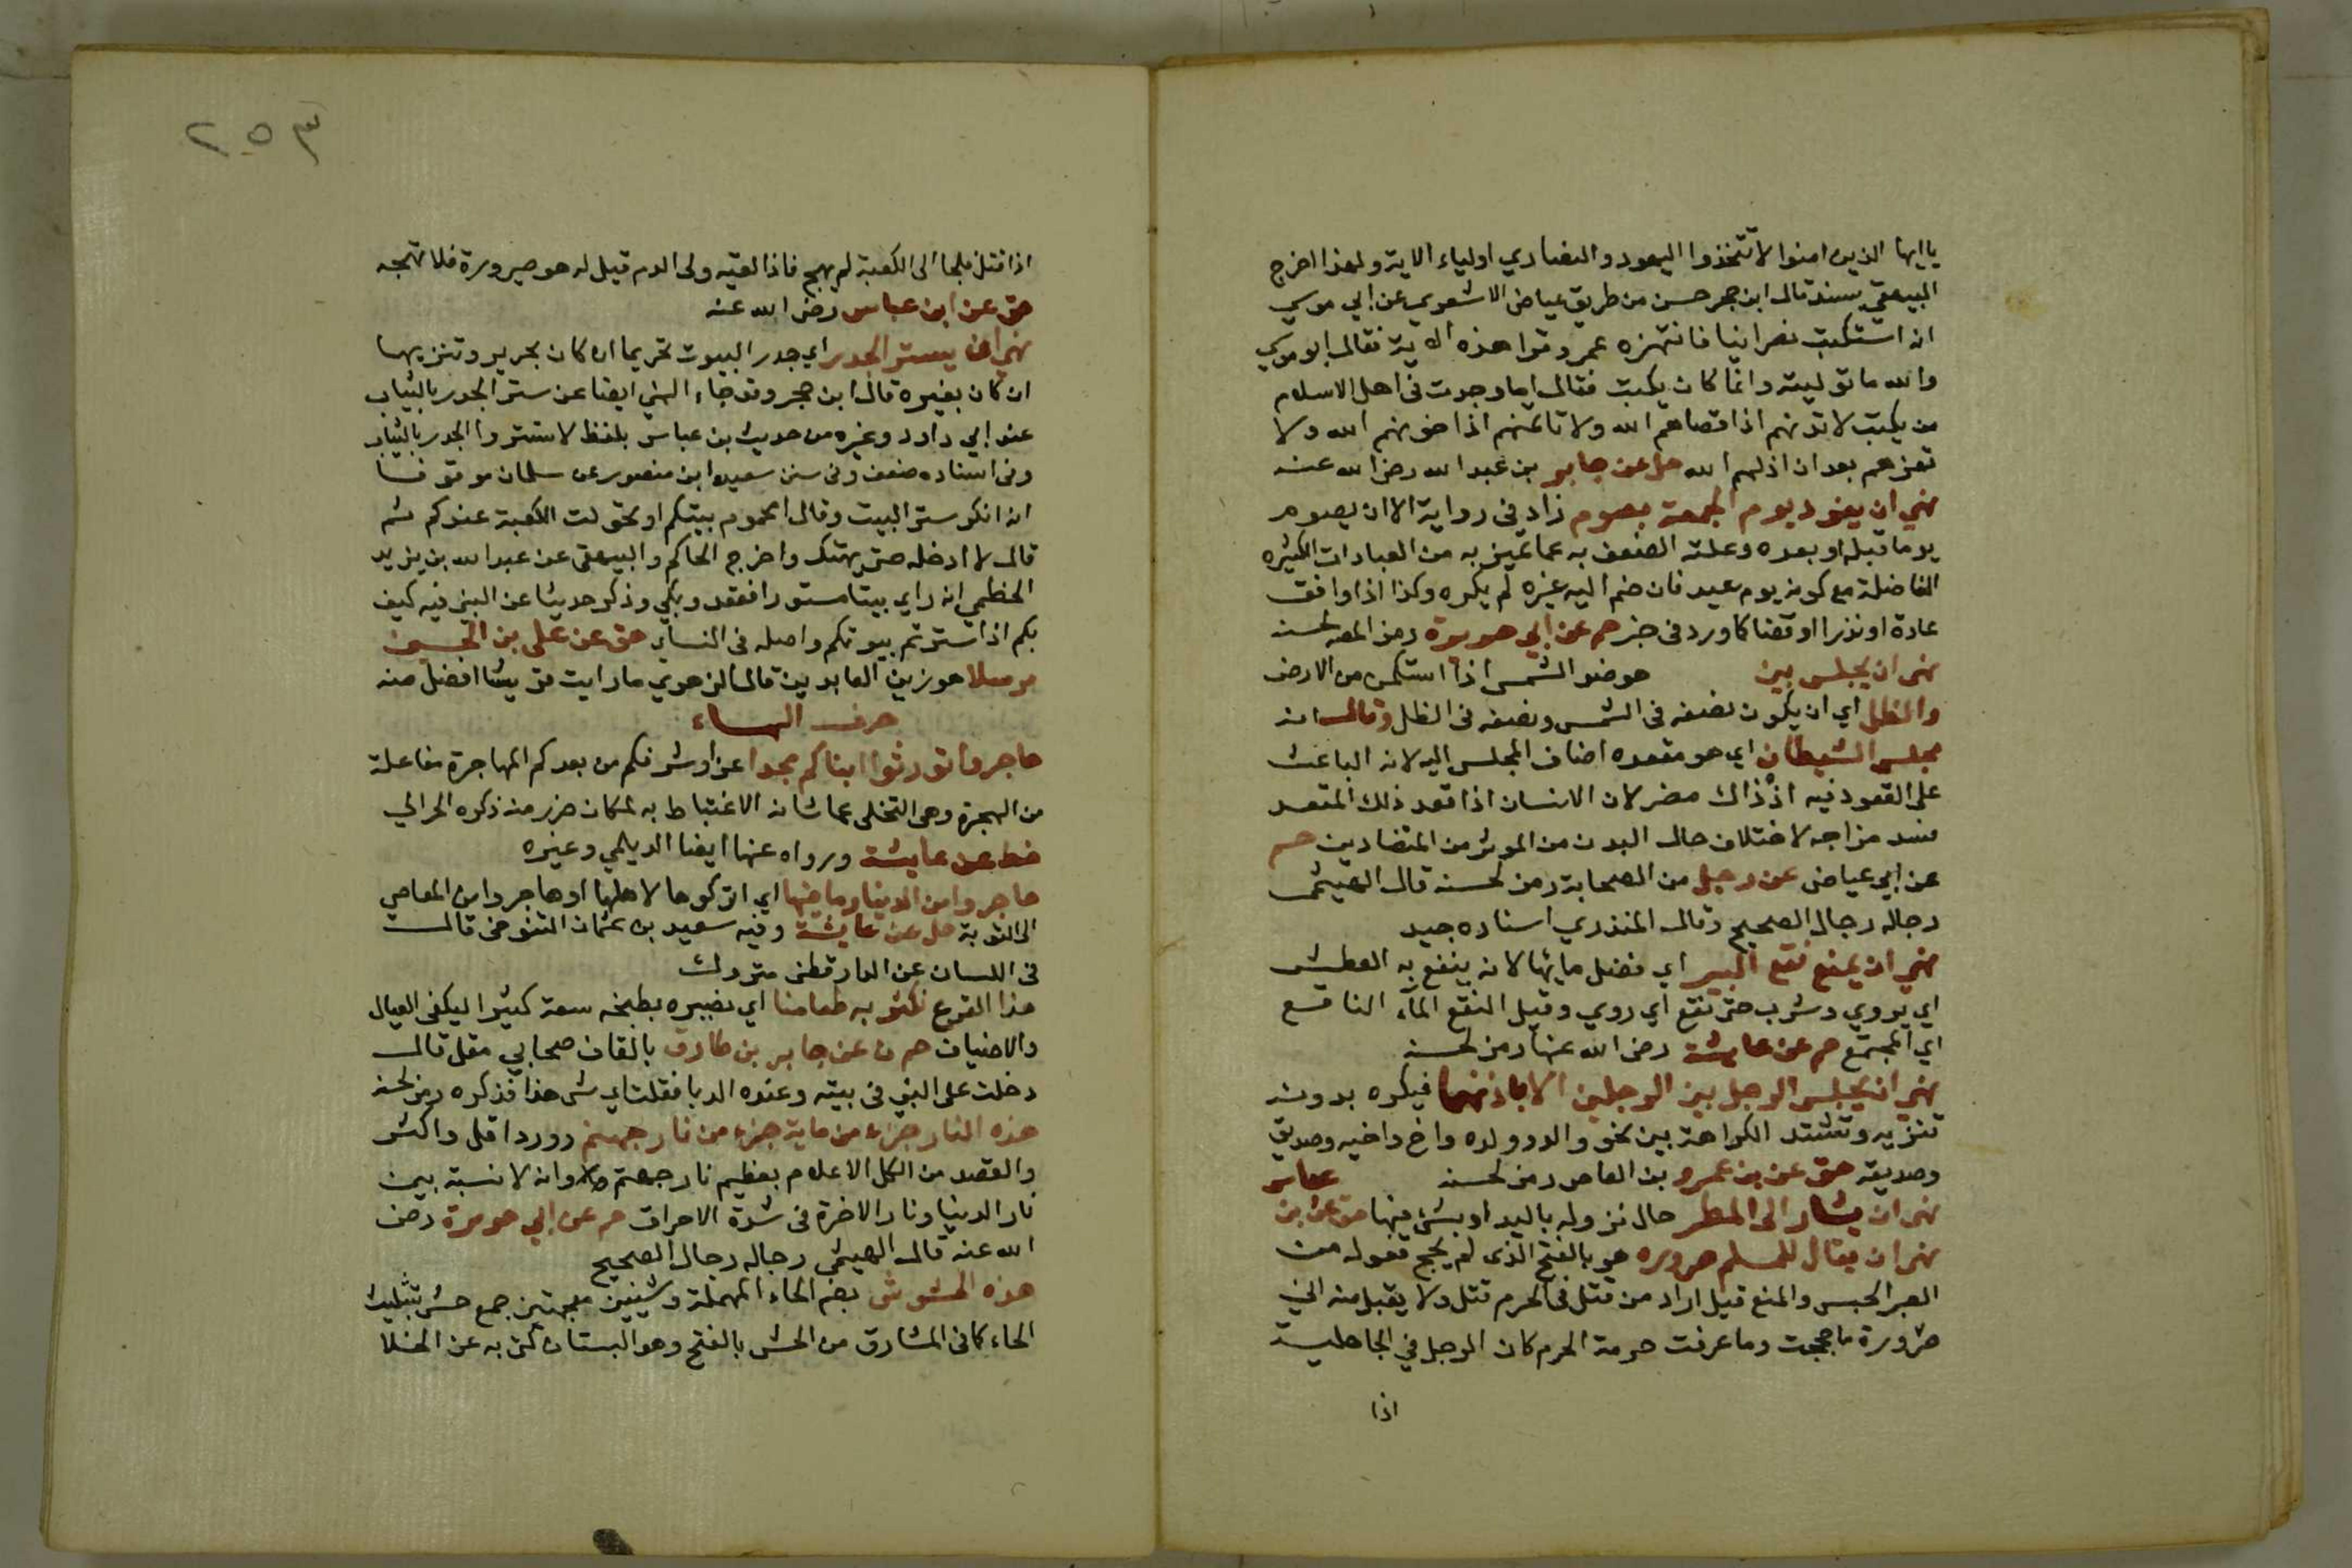 ياايها الذين امنوا لا تتخذوا اليهود والنصاري اولياء الاية ولهذا اخرج
البيهقي بسند قال ابن حجر حسن من طريق عياض الاشعري عن ابي موسي
انه استكتب نصرانيا فانتهره عمر وقرا هذه الاية فقال ابو موسي
والله ما توليته وانما كان يكتب فقال اما وجدت في اهل الاسلام
من يكتب لا تدنهم اذا اقصاهم الله ولا تامنهم اذا خونهم الله ولا
تعزهم بعد ان اذلهم الله حل عن جابر بن عبد الله رضي الله عنه
نهي ان يفرد يوم الجمعة بصوم زاد في رواية الا ان يصوم
يوما قبله او بعده وعلته الضعف به عما تميز به من العبادات الكثيره
الفاضلة مع كونه يوم عيد فان ضم اليه غيره لم يكره وكذا اذا وافق
عادة او نذرا او قضا كما ورد في خبر حم عن ابي هريرة رمز المص لحسنه
نهي ان يجلس بين هو ضو الشمس اذا استمكن من الارض
والظل اي ان يكون نصفه في الشمس ونصفه في الظل وقال انه
مجلس الشيطان اي هو مقعده اضاف المجلس اليه لانه الباعث
علي القعود فيه اذ ذاك مضر لان الانسان اذا قعد ذلك المقعد
فسد مزاجه لاختلاف حال البدن من الموثر من المتضادين حم
عن ابي عياض عن رجل من الصحابة رمز لحسنه قال الهيثمي
رجاله رجال الصحيح وقال المنذري اسناده جيد
نهي ان يمنع نقع البير اي فضل مايها لانه ينقع به العطش
اي يروي وشرب حتي نقع اي روي وقيل النقع الماء الناقع
اي المجتمع حم عن عايشة رضي الله عنها رمز لحسنه
نهي ان يجلس الرجل بين الرجلين الا باذنهما فيكره بدونه
تنزيه وتشتد الكراهة بين نحو والد وولده واخ واخيه وصديق
وصديقه هق عن بن عمرو بن العاص رمز لحسنه عباس
نهي ان يشار الي المطر حال نزوله باليد او بشي فيها هق عن بن
نهي ان يقال للمسلم صروره هو بالفتح الذي لم يحج فعوله من
الصر الحبس والمنع قيل اراد من قتل في الحرم قتل ولا يقبل منه اني
صرورة ما حججت وما عرفت حرمة الحرم كان الرجل في الجاهلية
اذا
٢٥٣
اذا قتل فلجا الي الكعبة لم يهج فاذا لقيه ولي الدم قيل له هو صرورة فلا تهجه
هق عن ابن عباس رضي الله عنه
نهي ان يستر الجدر اي جدر البيوت تحريما ان كان بحرير وتنزيها
ان كان بغيره قال ابن حجر وقد جاء النهي ايضا عن ستر الجدر بالثياب
عند ابي داود وغيره من حديث بن عباس بلفظ لا تستروا الجدر بالثياب
وفي اسناده ضعف وفي سنن سعيد ابن منصور عن سلمان موقوفا
انه انكر ستر البيت وقال امحموم بيتكم او تحولت الكعبة عندكم ثم
قال لا ادخله حتي يهتك واخرج الحاكم والبيهقي عن عبد الله بن يزيد
الخطمي انه راي بيتا مستورا فقعد وبكي وذكر حديثا عن النبي فيه كيف
بكم اذا سترتم بيوتكم واصله في النساي هق عن علي بن الحسين
مرسلا هو زين العابدين قال الزهري ما رايت قريشا افضل منه
حرف الهاء
هاجروا تورثوا ابناكم مجدا عزا وشرفكم من بعدكم المهاجرة مفاعلة
من الهجرة وهي التخلي عما شانه الاغتباط به لمكان ضرر منه ذكره الحرالي
خط عن عايشة ورواه عنها ايضا الديلمي وغيره
هاجروا من الدنيا وما فيها اي اتركوها لاهلها او هاجروا من المعاصي
الي التوبة حل عن عايشة وفيه سعيد بن عثمان التنوخي قال
في اللسان عن الدارقطني متروك
هذا القرع نكثر به طعامنا اي نصيره بطبخه معه كثيرا ليكفي العيال
والاضياف حم ن عن جابر بن طارق بالقاف صحابي مقل قال
دخلت علي النبي في بيته وعنده الدبا فقلت اي شي هذا فذكره رمز لحسنه
هذه النار جزء من ماية جزء من نار جهنم وورد اقل واكثر
والقصد من الكل الاعلام بعظيم نار جهنم وانه لا نسبة بين
نار الدنيا ونار الاخرة في شدة الاحراق حم عن ابي هريرة رضي
الله عنه قال الهيثمي رجاله رجال الصحيح
هذه الحشوش بضم الحاء المهملة وشينين معجمتين جمع حش بتثليث
الحاء كما في المشارق من الحش بالفتح وهو البستان كني به عن الخلا